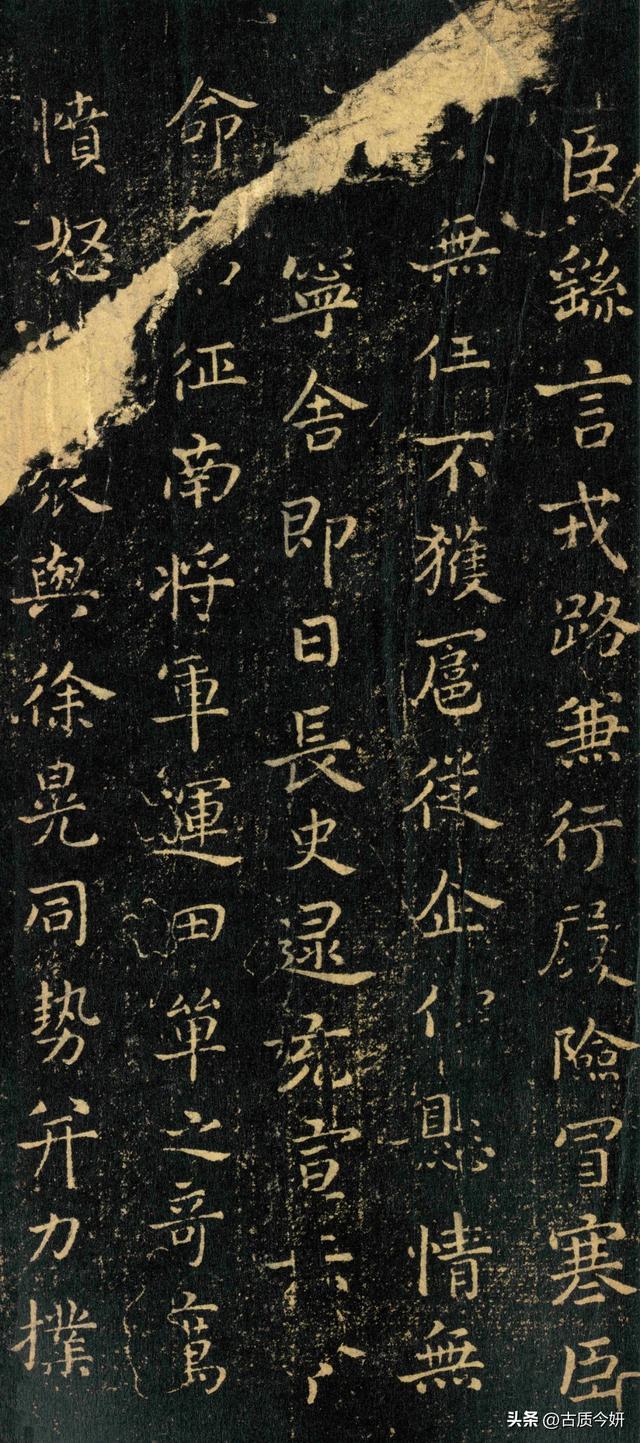 臣繇言戎路兼行履險冒寒臣
無任不獲扈從企佇懸情無
寧舍即日長史逮充宣示令
命征南將軍運田單之奇厲
憤怒眾與徐晃同勢并力撲
头条 @古质今妍